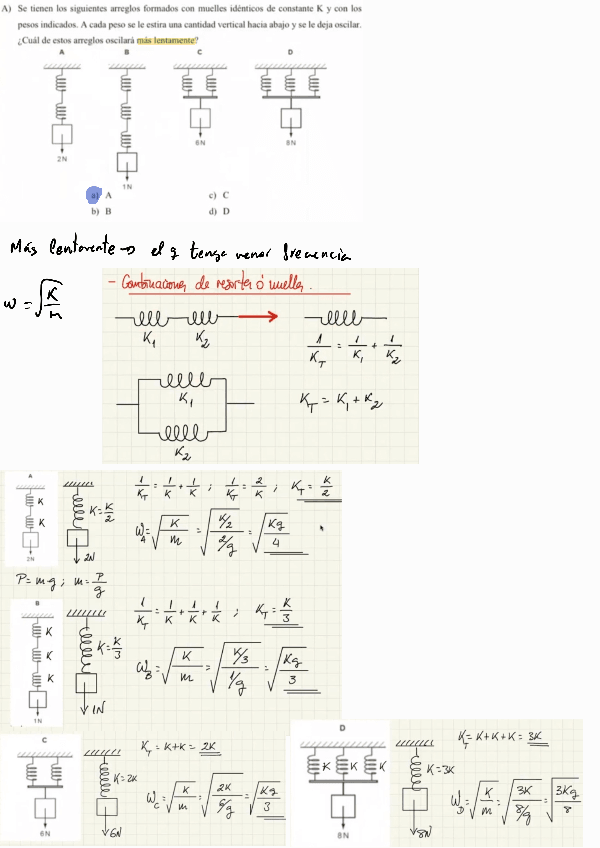 A) Se tienen los siguientes arreglos formados con muelles idénticos de constante K y con los
pesos indicados. A cada peso se le estira una cantidad vertical hacia abajo y se le deja oscilar.
¿Cuál de estos arreglos oscilará más lentamente?
A B C D
2N 1N 6N 8N
a) A c) C
b) B d) D
Más lentamente → el q tenga menor frecuencia
w = √(K/m)
- Combinaciones de resortes ó muelles.
K₁ K₂
1/K_T = 1/K₁ + 1/K₂
K₁
K_T = K₁ + K₂
K₂
A
K
K
2N
K=K/2
2N
1/K_T = 1/K + 1/K ; 1/K_T = 2/K ; K_T = K/2
W_A = √(K/m) = √((K/2)/(2/g)) = √(Kg/4)
P = m·g ; m = P/g
B
K
K
K
1N
K=K/3
1N
1/K_T = 1/K + 1/K + 1/K ; K_T = K/3
W_B = √(K/m) = √((K/3)/(1/g)) = √(Kg/3)
C
6N
K=2K
6N
K_T = K+K = 2K
W_C = √(K/m) = √(2K/(6/g)) = √(Kg/3)
D
K K K
8N
K=3K
8N
K_T = K+K+K = 3K
W_D = √(K/m) = √(3K/(8/g)) = √(3Kg/8)